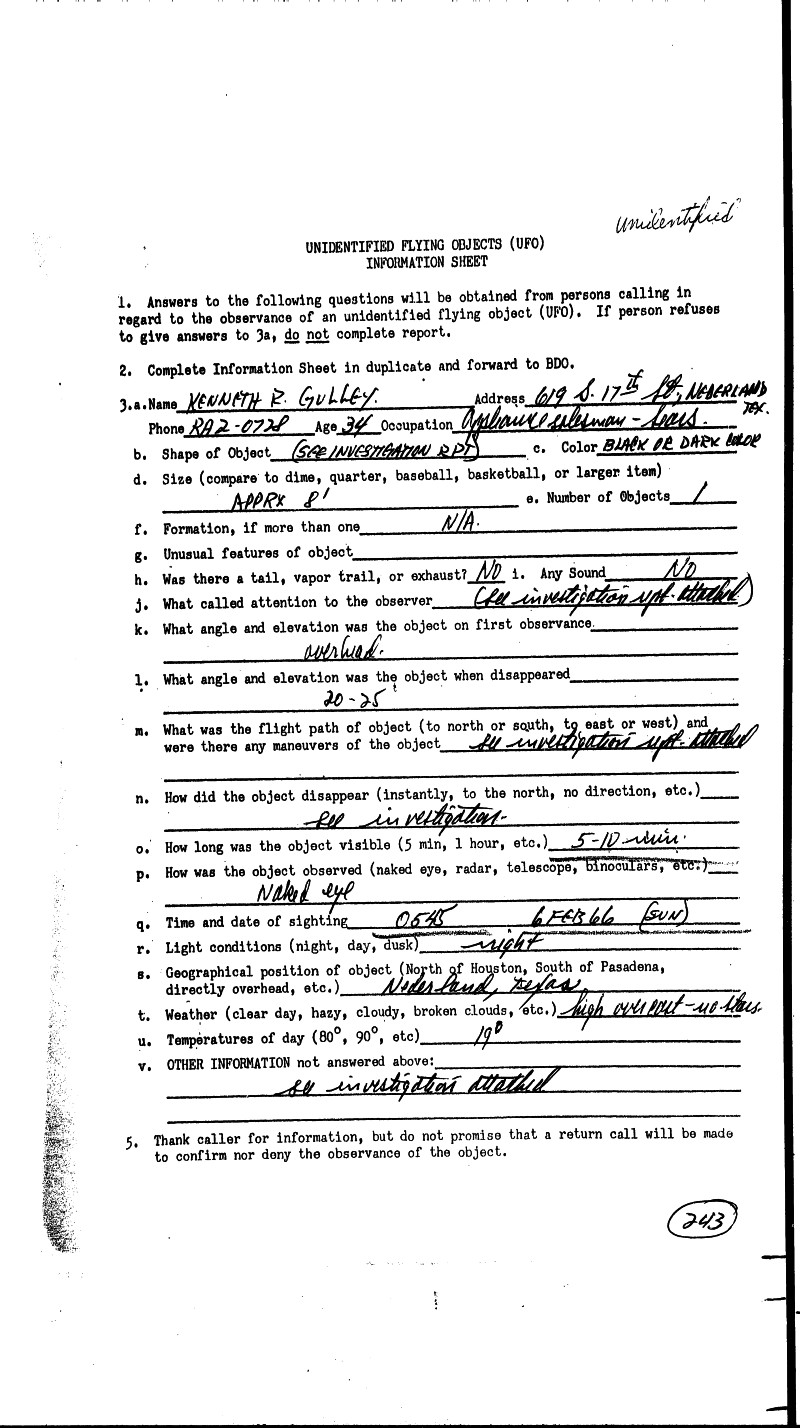 unidentified
UNIDENTIFIED FLYING OBJECTS (UFO)
INFORMATION SHEET
1. Answers to the following questions will be obtained from persons calling in
regard to the observance of an unidentified flying object (UFO). If person refuses
to give answers to 3a, do not complete report.
2. Complete Information Sheet in duplicate and forward to BDO.
3.a. Name KENNETH R. GULLEY. Address 619 S. 17th St, NEDERLAND TEX.
Phone RA2-0728 Age 34 Occupation Appliance salesman - Sears.
b. Shape of Object (SEE INVESTIGATION RPT) c. Color BLACK OR DARK COLOR
d. Size (compare to dime, quarter, baseball, basketball, or larger item)
APPRX 8' e. Number of Objects 1
f. Formation, if more than one N/A.
g. Unusual features of object
h. Was there a tail, vapor trail, or exhaust? NO i. Any Sound NO
j. What called attention to the observer (see investigation rpt. attached)
k. What angle and elevation was the object on first observance.
overhead.
l. What angle and elevation was the object when disappeared
20-25°
m. What was the flight path of object (to north or south, to east or west) and
were there any maneuvers of the object see investigation rpt. attached
n. How did the object disappear (instantly, to the north, no direction, etc.)
see investigation-
o. How long was the object visible (5 min, 1 hour, etc.) 5-10 min.
p. How was the object observed (naked eye, radar, telescope, binoculars, etc.)
Naked eye
q. Time and date of sighting 0645 6 FEB 66 (SUN)
r. Light conditions (night, day, dusk) night
s. Geographical position of object (North of Houston, South of Pasadena,
directly overhead, etc.) Nederland, Texas.
t. Weather (clear day, hazy, cloudy, broken clouds, etc.) high overcast - no stars.
u. Temperatures of day (80°, 90°, etc) 19°
v. OTHER INFORMATION not answered above:
see investigation attached
5. Thank caller for information, but do not promise that a return call will be made
to confirm nor deny the observance of the object.
243